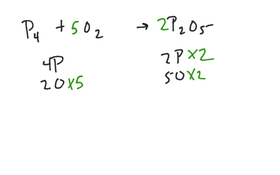 P₄ + 5O₂ → 2P₂O₅
4P 2P×2
2O×5 5O×2